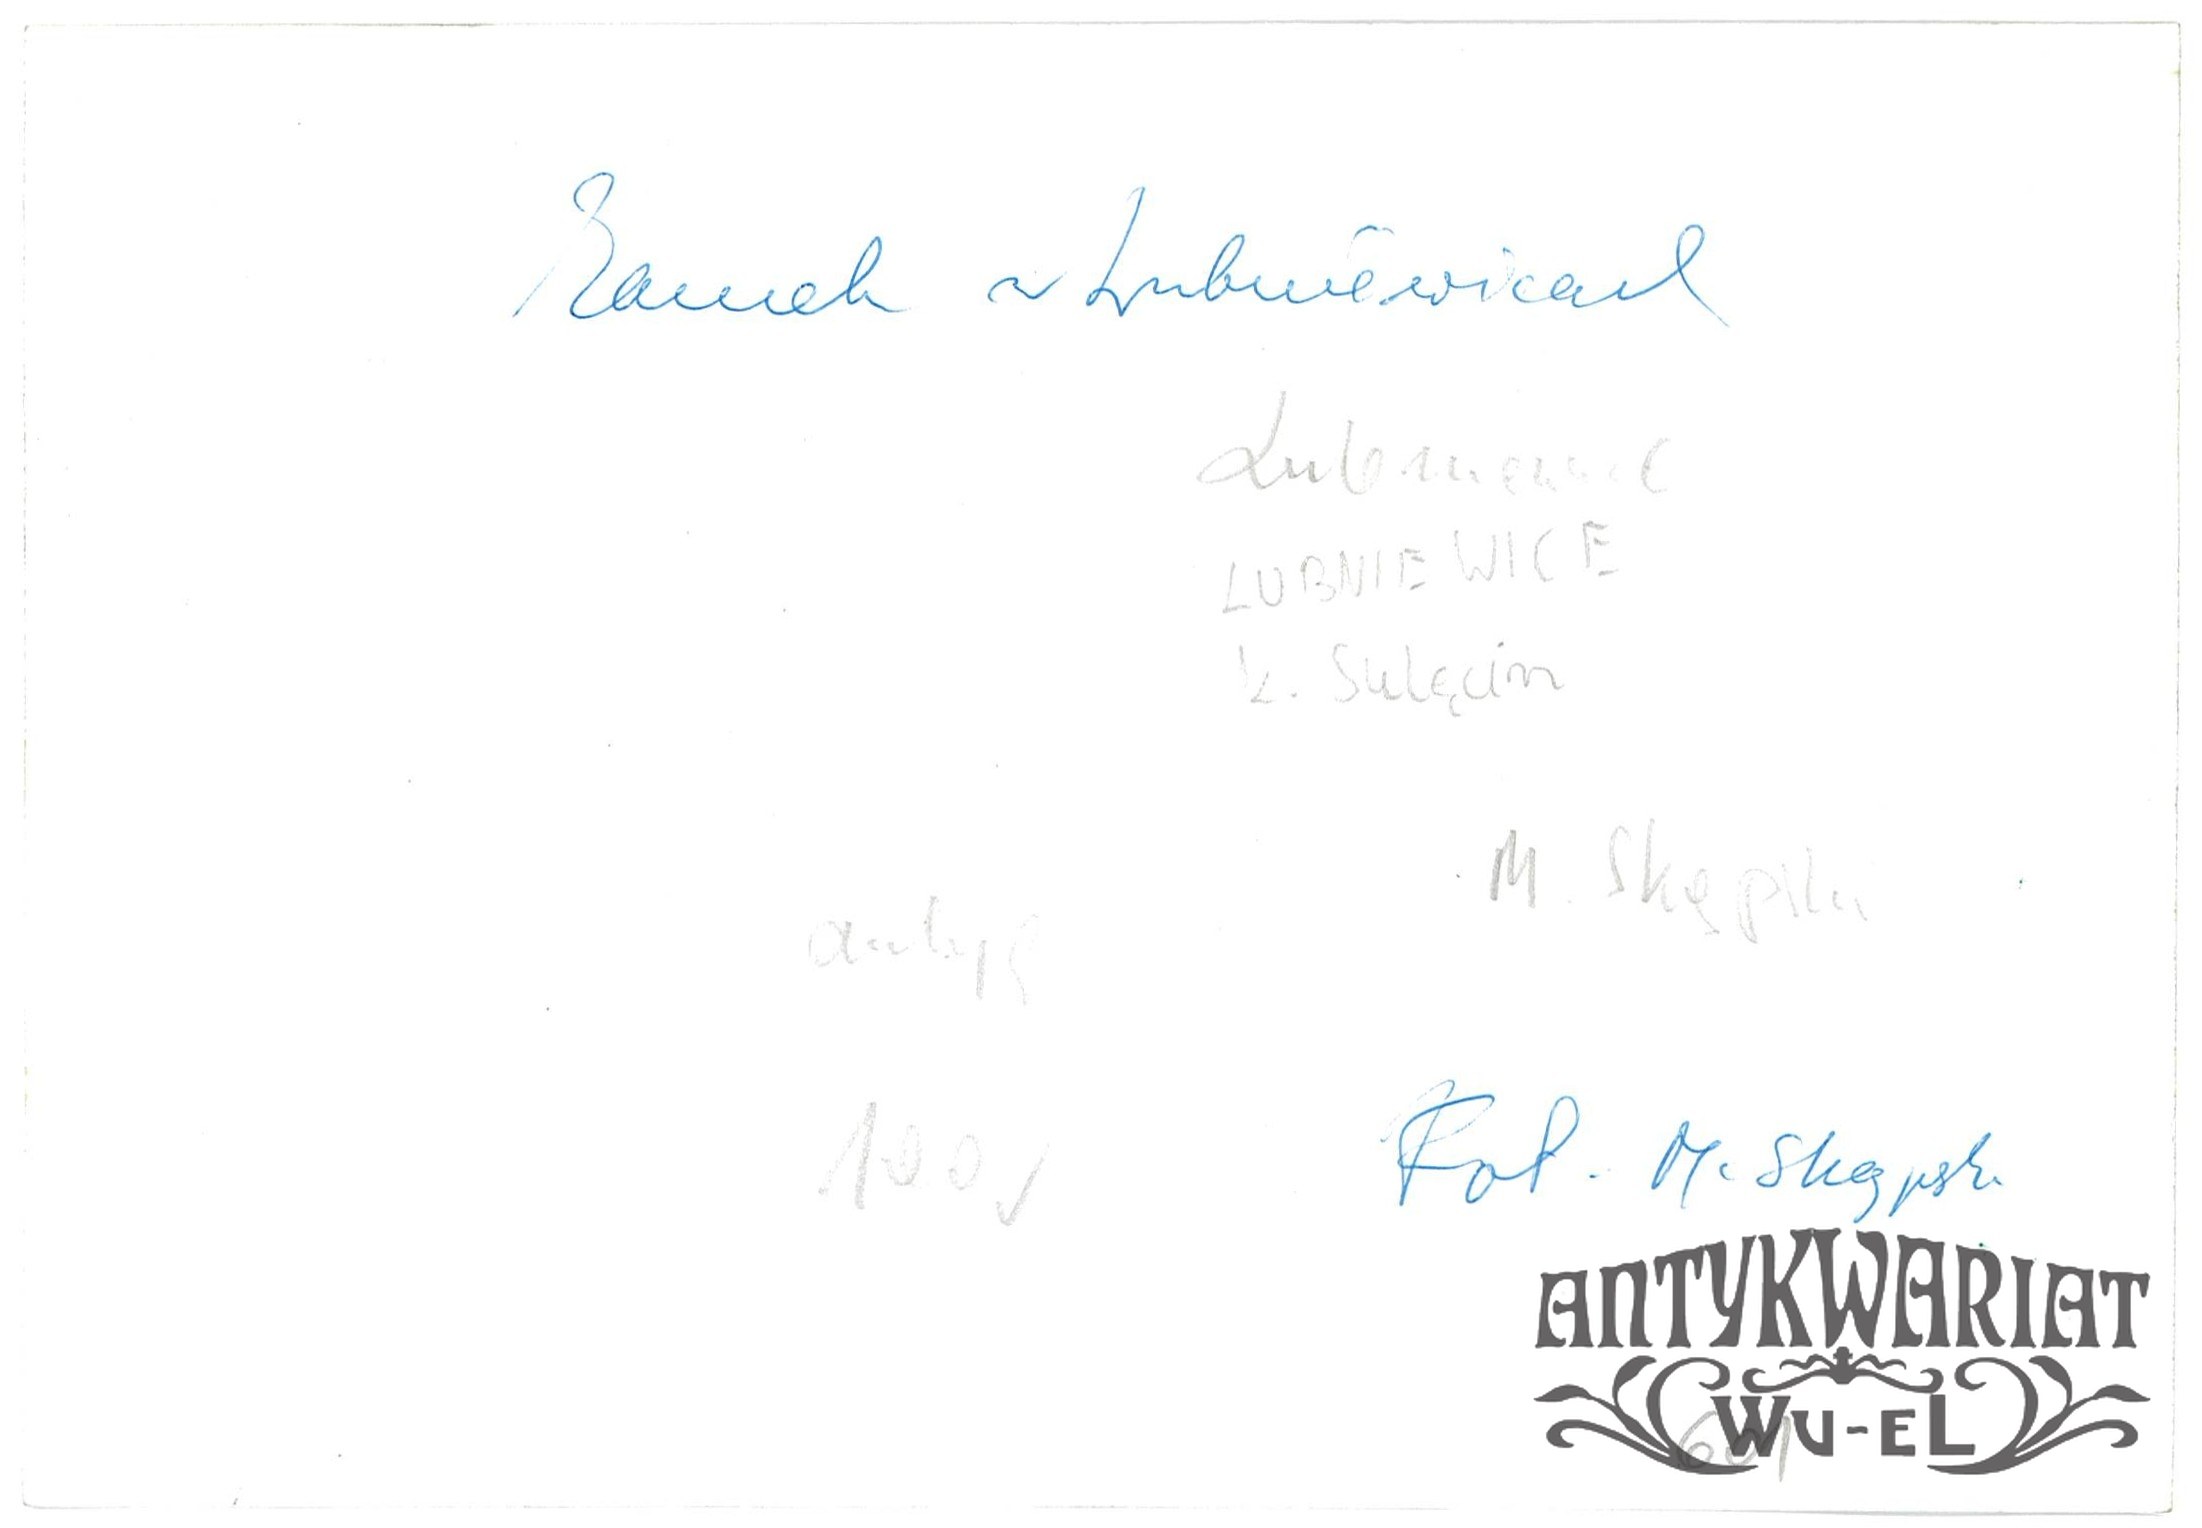 Zamek w Lubniewicach
Lubniewice
LUBNIEWICE
k. Sulęcin
M. Skępski
antyg
100,
Fot. M. Skępski
ANTYKWARIAT
WU-EL